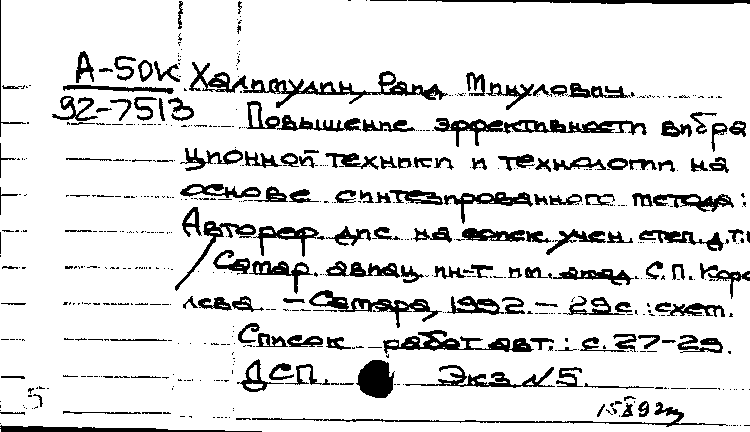 А-50К Халитулин, Раид Минулович.
92-7513 Повышение эффективности вибра
ционной техники и технологии на
основе синтезированного метода:
Автореф. дис. на соиск. учен. степ. д.т.н
/ Самар. авиац. ин-т им. акад. С.П. Коро
лева. – Самара, 1992. – 29 с.: схем.
Список работ авт.: с. 27-29.
ДСП. Экз. №5.
5 15 X 92